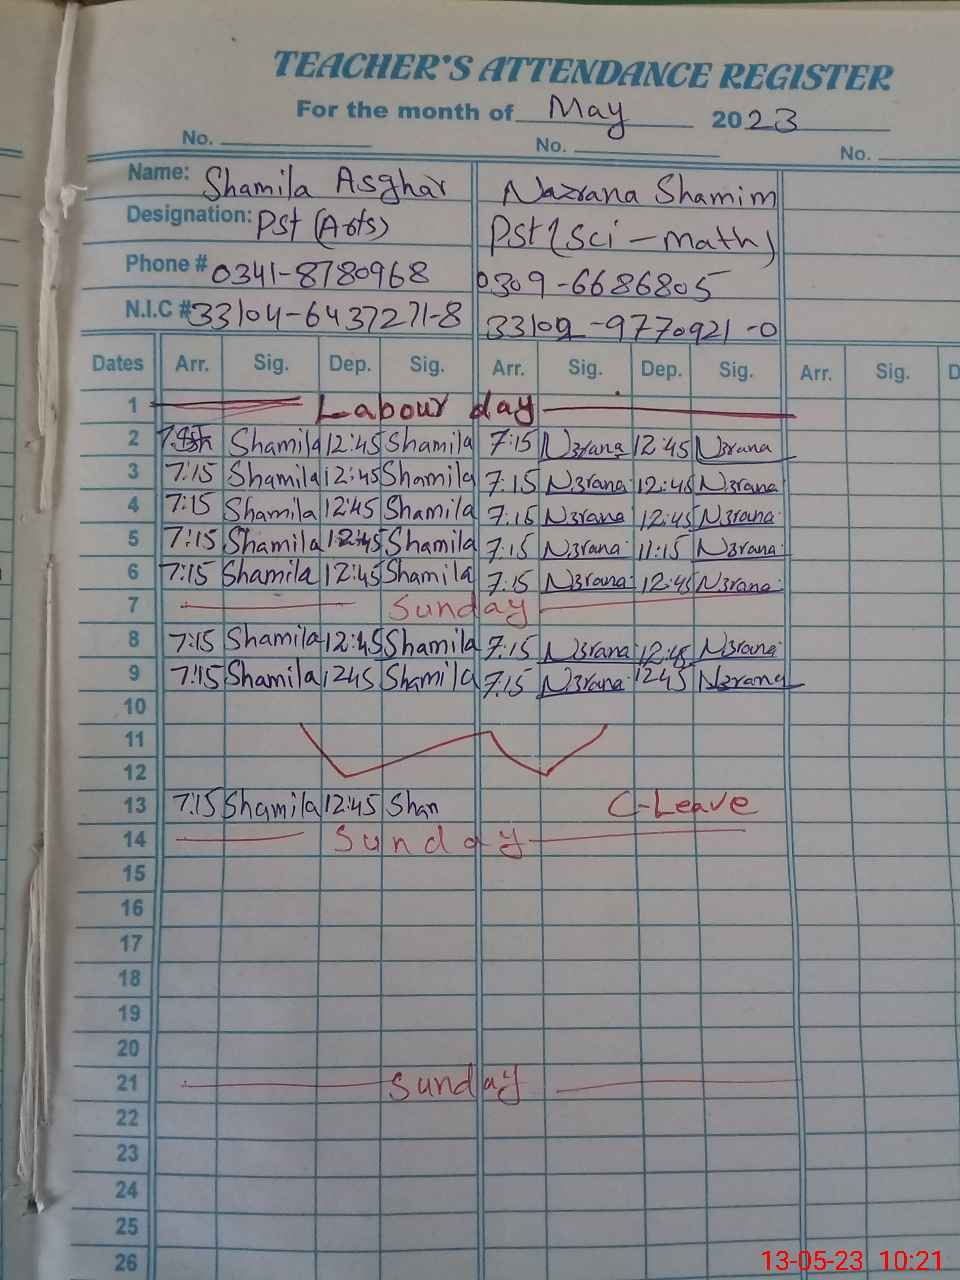 TEACHER'S ATTENDANCE REGISTER
For the month of May 2023
No. No. No.
Name: Shamila Asghar Nazrana Shamim
Designation: Pst (Arts) Pst (Sci - math)
Phone # 0341-8780968 0309-6686805
N.I.C # 33104-6437271-8 33102-9770921-0
Dates Arr. Sig. Dep. Sig. Arr. Sig. Dep. Sig. Arr. Sig. D
1 Labour day
2 Shamila 12:45 Shamila 7:15 N3rana 12:45 N3rana
3 7:15 Shamila 12:45 Shamila 7:15 N3rana 12:45 N3rana
4 7:15 Shamila 12:45 Shamila 7:15 N3rana 12:45 N3rana
5 7:15 Shamila 12:45 Shamila 7:15 N3rana 11:15 N3rana
6 7:15 Shamila 12:45 Shamila 7:15 N3rana 12:45 N3rana
7 Sunday
8 7:15 Shamila 12:45 Shamila 7:15 N3rana 12:45 N3rana
9 7:15 Shamila 1245 Shamila 7:15 N3rana 1245 N3rana
10
11
12
13 7:15 Shamila 12:45 Sham C-Leave
14 Sunday
15
16
17
18
19
20
21 Sunday
22
23
24
25
26
13-05-23 10:21